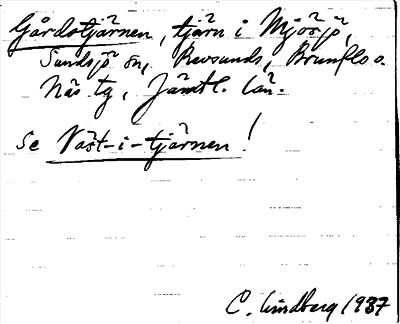 Gårdstjärnen, tjärn i Mjösjö,
Sundsjö sn, Revsunds, Brunflo o.
Näs tg, Jämtl. län.
Se Väst-i-tjärnen!
C. Lindberg 1937